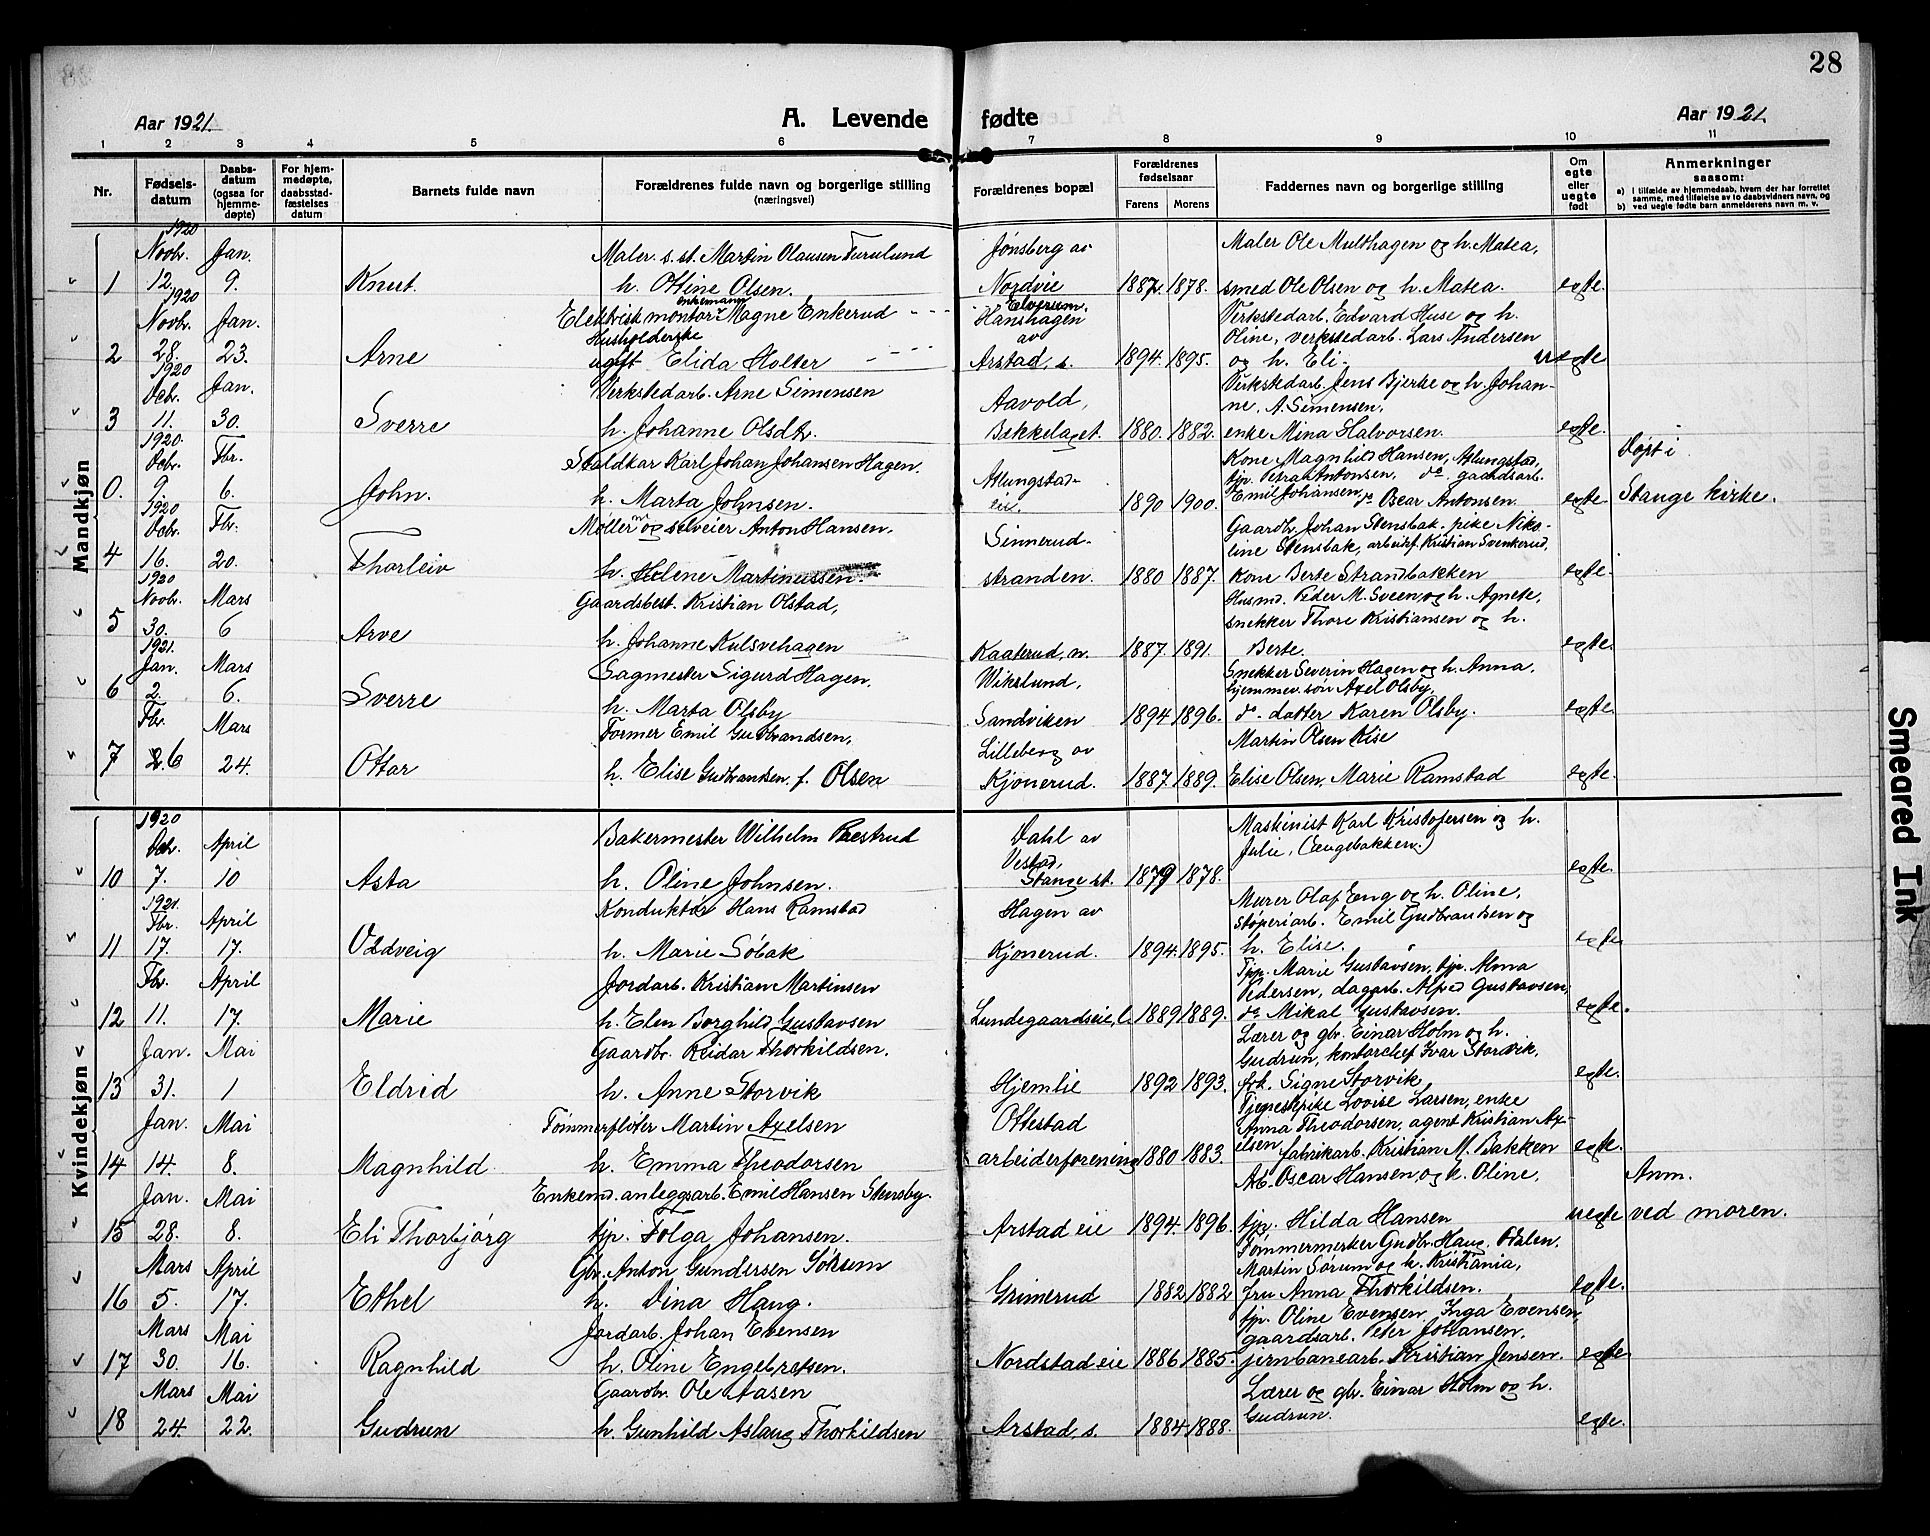 28
Aar 1921.
A. Levende fødte
Aar 1921.
1 2 3 4 5 6 7 8 9 10 11
Nr.
Fødselsdatum
Daabsdatum (ogsaa for hjemmedøpte)
For hjemmedøpte, daabsstadfæstelses datum
Barnets fulde navn
Forældrenes fulde navn og borgerlige stilling (næringsvei)
Forældrenes bopæl
Forældrenes fødselsaar
Farens Morens
Faddernes navn og borgerlige stilling
Om egte eller uegte født
Anmerkninger saasom:
a) I tilfælde av hjemmedaab, hvem der har forrettet samme, med tilføielse av to daabsvidners navn, og
b) ved uegte fødte barn anmelderens navn m. v.
Mandkjøn
1920 Novbr. Jan. Maler. s. st. Martin Olausen Furulund Jønsberg av Maler Ole Multhagen og h. Matea,
1 12. 9. Knut. h. Ottine Olsen. Nordvie 1887. 1878. smed Ole Olsen og h. Matea. egte.
1920 Novbr. Jan. Elektrisk montør enkemann Magne Enkerud Elverum. Hanshagen Verkstedarb. Edvard Huse og h.
Husholderske av Oline, verkstedarb. Lars Andersen
2 28. 23. Arne ugift Elida Holter Arstad, s. 1894. 1895. og h. Eli. uegte
1920 Dcbr. Jan. Verkstedarb. Arne Simensen Aavold, Verkstedarb. Jens Bjerke og h. Johanne. A. Simensen,
3 11. 30. Sverre h. Johanne Olsdtr. Bekkelaget. 1880. 1882. enke Mina Halvorsen. egte.
1920. Dcbr. Fbr. Staldkar Karl Johan Johansen Hagen. Atlungstad- Kone Magnhild Hansen, Atlungstad, tjp. Petra Antonsen, do gaardsarb. Døpt i
0. 9 6. John. h. Marta Johnsen. eie. 1890 1900. Emil Johansen, do Oscar Antonsen. egte. Stange kirke.
1920 Dcbr. Fbr. Møller og selveier Anton Hansen. Sinnerud- Gaardbr. Johan Stensbak. pike Nikoline Stensbak, arbeidsf. Kristian Svenkerud,
4 16. 20. Thorleiv h. Helene Martinussen. stranden. 1880 1887. Kone Berte Strandbakken egte.
1920 Novbr. Mars Gaardsbest. Kristian Olstad, Husmd. Peder M. Sveen, og h. Agnete, snekker Thore Kristiansen og h.
5 30. 6 Arve h. Johanne Kulsvehagen Kaaterud, n. 1887. 1891. Berte. egte.
1921. Jan. Mars Sagmester Sigurd Hagen, Wikslund, Snekker Severin Hagen og h. Anna, hjemmev. søn Axel Olsby,
6 2. 6. Sverre h. Marta Olsby Sandviken 1894 1896. do. datter Karen Olsby. egte.
Fbr. Mars Former Emil Gudbrandsen, Lilleberg av Martin Olsen Kise
7 26 24. Ottar h. Elise Gudbrandsen f. Olsen Kjonerud. 1887. 1889. Elise Olsen, Marie Ramstad egte.
Kvindekjøn
1920 Dcbr. April Bakermester Wilhelm Præstrud Dahl av Vestad, Maskinist Karl Kristofersen og h. Julie, (Engebakken.)
10 7. 10 Asta h. Oline Johnsen. Stange st. 1879 1878. egte.
1921. Fbr. April Konduktør Hans Ramstad Hagen av Murer Olaf Eng og h. Oline, Støperiarb. Emil Gudbrandsen og
11 17. 17. Oddveig h. Marie Søbak Kjonerud. 1894. 1895. h. Elise. egte
Fbr. April Jordarb. Kristian Martinsen Tjp. Marie Gustavsen, tjp. Alma Pedersen, dagarb. Alfred Gustavsen,
12 11. 17. Marie h. Elen Borghild Gustavsen Lundegaardseie, l. 1889 1889. do Mikal Gustavsen. egte.
Jan. Mai Gaardbr. Reidar Thorkildsen, Lærer og gbr. Einar Holm og h. Gudrun, kontorchef Ivar Storvik,
13 31. 1 Eldrid h. Anne Storvik Hjemlie 1892 1893. frk. Signe Storvik egte.
Jan. Mai Tømmerfløter Martin Axelsen Ottestad Tjenestepike Lovise Larsen, enke Anna Theodorsen, agent Kristian Axelsen,
14 14. 8. Magnhild h. Emma Theodorsen arbeiderforening 1880 1883. fabrikarb. Kristian M. Bakken egte.
Jan. Mai Enkemd. anleggsarb. Emil Hansen Stensby. Ab. Oscar Hansen, og h. Oline, Anm.
15 28. 8. Eli Thorbjørg tjp. Folga Johansen. Arstad eie 1894. 1896. tjp. Hilda Hansen uegte ved moren.
Mars April Gbr. Anton Gundersen Sørum Tømmermerker Gudbr. Haug, Odalen, Martin Sørum og h. Kristiania,
16 5. 17. Ethel h. Dina Haug. Grimerud 1882 1882 fru Anna Thorkildsen. egte.
Mars Mai Jordarb. Johan Evensen tjp. Oline Evensen, Inga Evensen, gaardsarb. Peter Johansen,
17 30. 16. Ragnhild h. Oline Engebretsen. Nordstad eie 1886 1885. jernbanearb. Kristian Jensen. egte
Mars Mai Gaardbr. Ole Aasen Lærer og gbr. Einar Holm og h.
18 24. 22. Gudrun h. Gunhild Aslaug Thorkildsen Arstad, s. 1884 1888. Gudrun. egte.
Smeared Ink